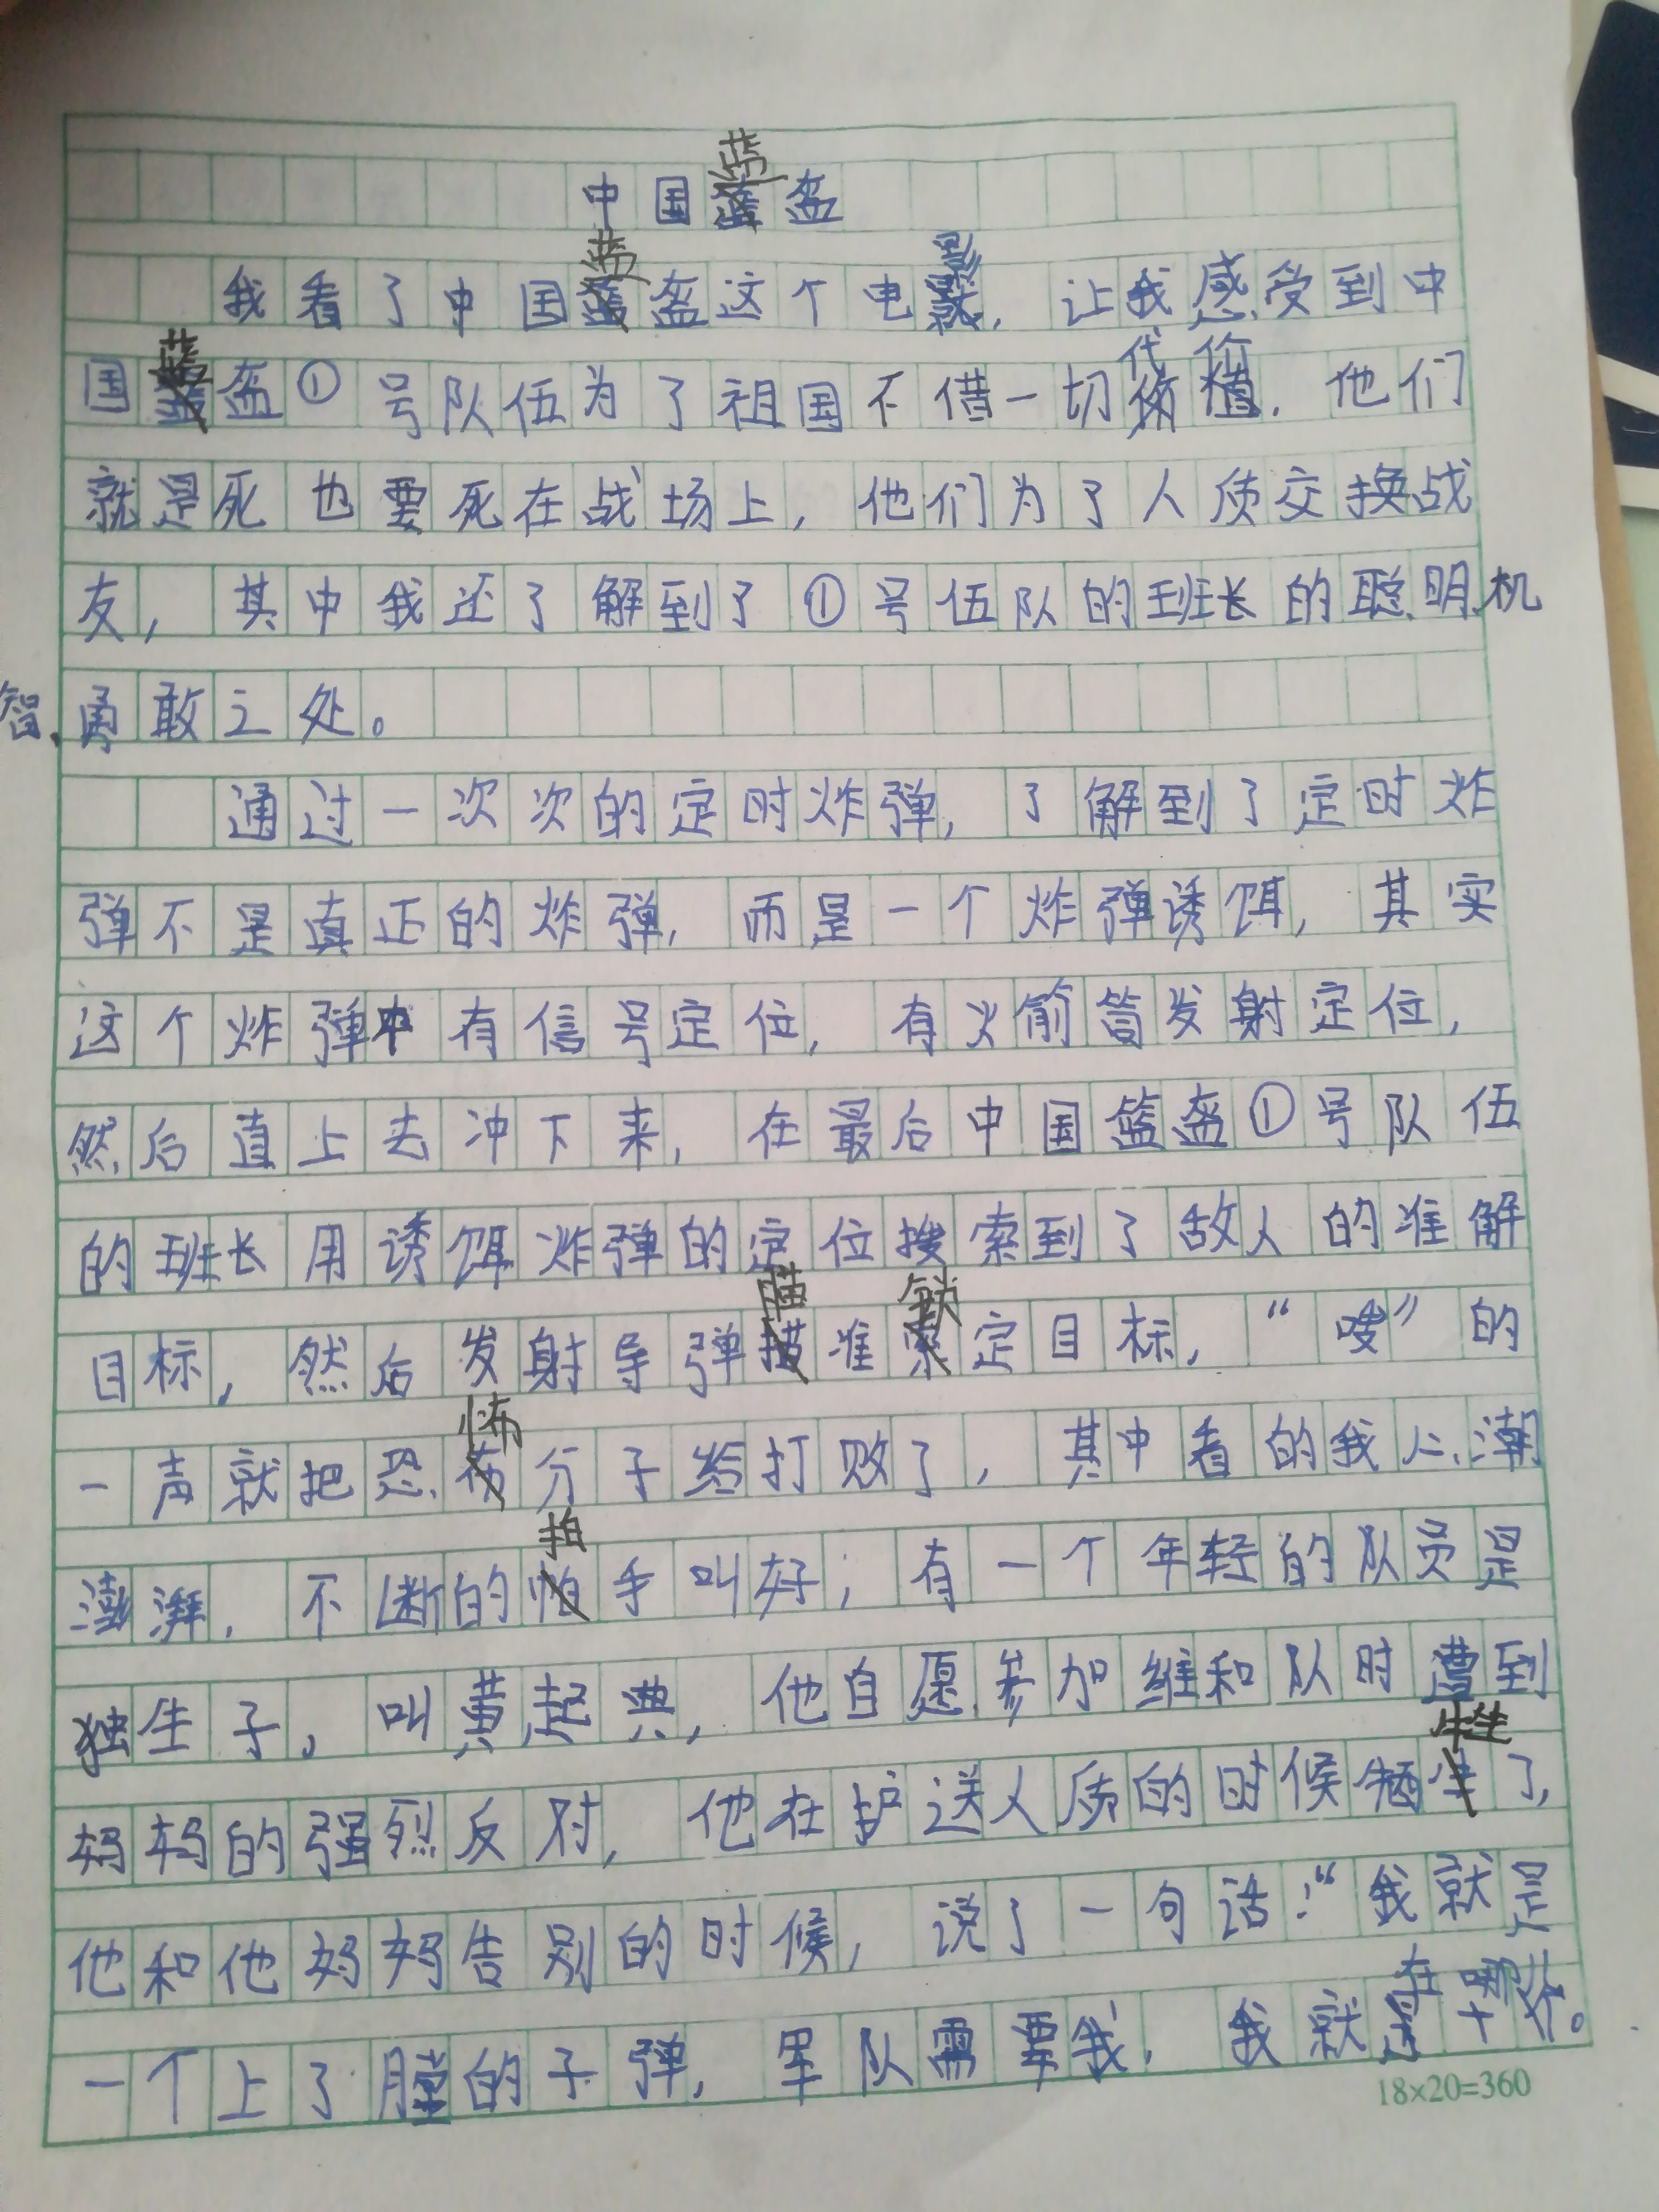 中国蓝盔
我看了中国蓝盔这个电影，让我感受到中
国蓝盔①号队伍为了祖国不借一切代价。他们
就是死也要死在战场上，他们为了人质交换战
友，其中我还了解到了①号伍队的班长的聪明机
智勇敢之处。
通过一次次的定时炸弹，了解到了定时炸
弹不是真正的炸弹，而是一个炸弹诱饵，其实
这个炸弹中有信号定位，有火箭筒发射定位，
然后直上去冲下来，在最后中国篮盔①号队伍
的班长用诱饵炸弹的定位搜索到了敌人的准解
目标，然后发射导弹瞄准锁定目标，“嗖”的
一声就把恐怖分子给打败了，其中看的我心潮
澎湃，不断的拍手叫好；有一个年轻的队员是
独生子，叫黄起典，他自愿参加维和队时遭到
妈妈的强烈反对，他在护送人质的时候牺牲了，
他和他妈妈告别的时候，说了一句话：“我就是
一个上了膛的子弹，军队需要我，我就在哪
18×20=360